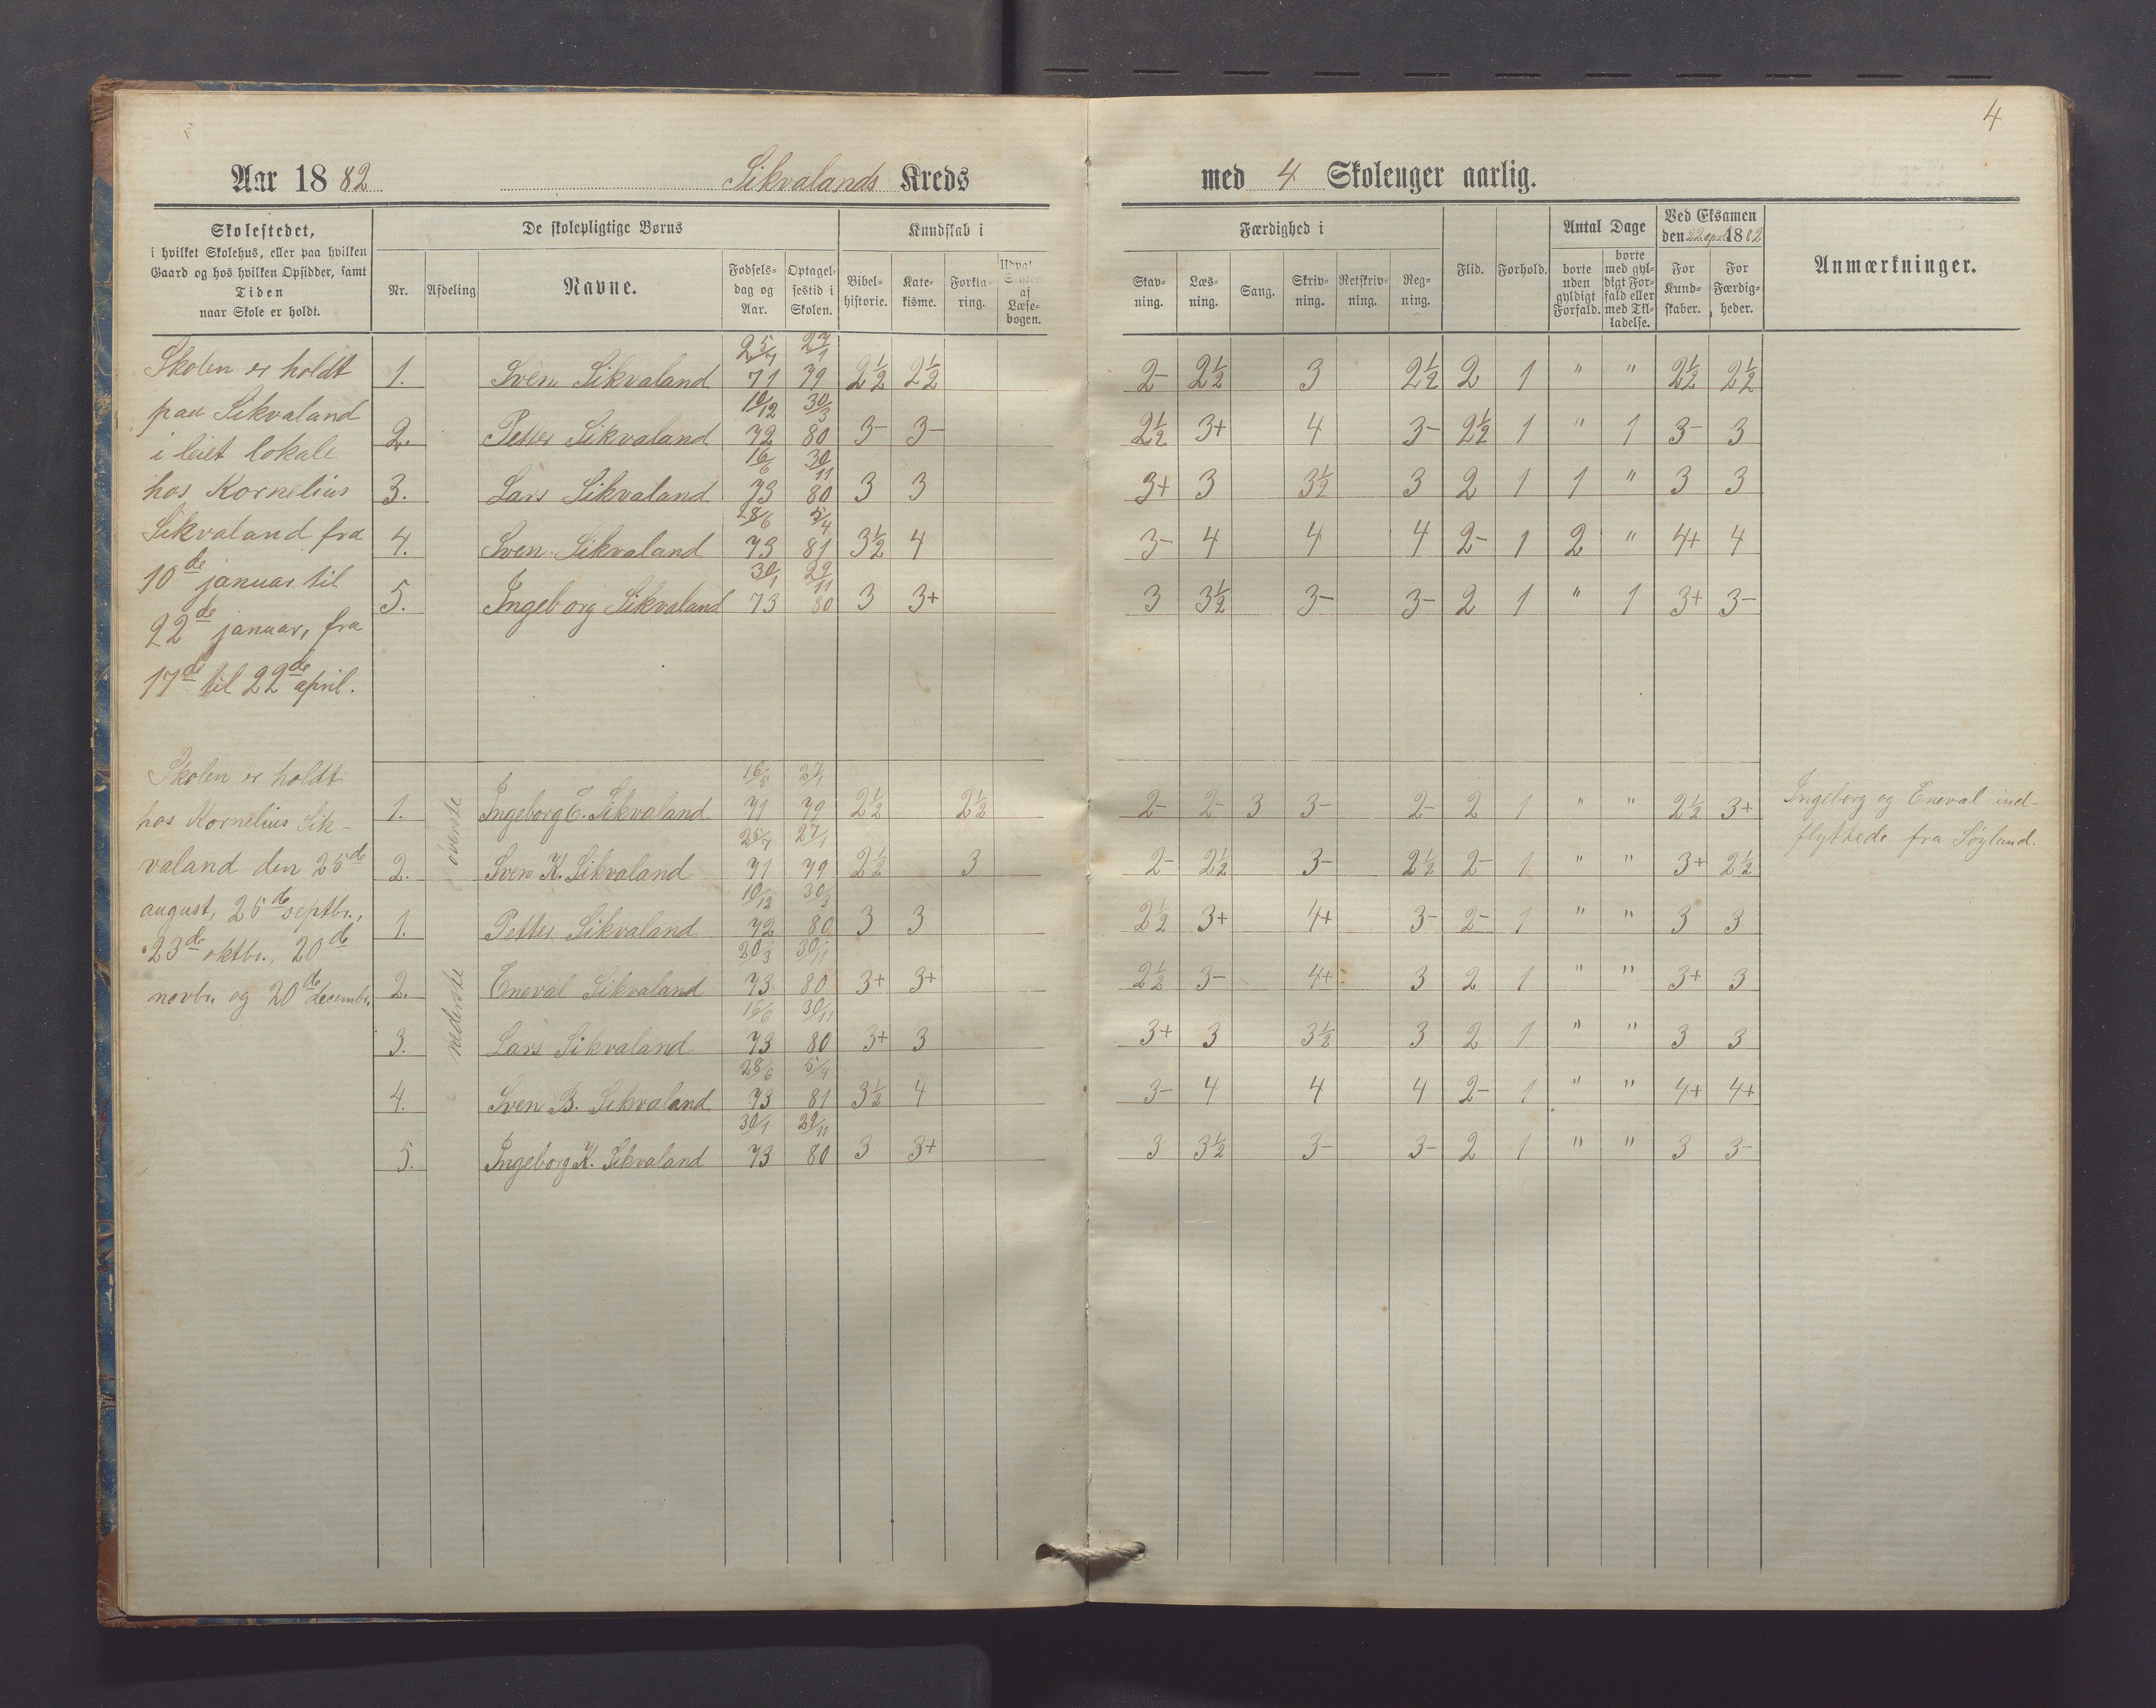 4
Aar 1882 Sikvalands Kreds med 4 Skolenger aarlig.
Skolestedet,
i hvilket Skolehus, eller paa hvilken
Gaard og hos hvilken Opsidder, samt
Tiden
naar Skole er holdt.
De skolepligtige Børns
Nr. Afdeling Navne.
Fødsels-
dag og
Aar.
Optagel-
sestid i
Skolen.
Kundskab i
Bibel-
historie.
Kate-
kisme.
Forkla-
ring.
af
Læse-
bogen.
Færdighed i
Stav-
ning.
Læs-
ning.
Sang.
Skriv-
ning.
Retskriv-
ning.
Reg-
ning.
Flid.
Forhold.
Antal Dage
borte
uden
gyldigt
Forfald.
borte
med gyl-
digt For-
fald eller
med Til-
ladelse.
Ved Eksamen
den 22 april 1882
For
Kund-
skaber.
For
Færdig-
heder.
Anmærkninger.
Skolen er holdt
paa Sikvaland
i leiet lokale
hos Kornelius
Sikvaland fra
10de januar til
22de januar, fra
17de til 22de april.
1. Sven Sikvaland 25/7 71 27/1 79 2½ 2½ 2- 2½ 3 2½ 2 1 " " 2½ 2½
2. Petter Sikvaland 10/12 72 30/3 80 3- 3- 2½ 3+ 4 3- 2½ 1 " 1 3- 3
3. Lars Sikvaland 16/6 73 30/11 80 3 3 3+ 3 3½ 3 2 1 1 " 3 3
4. Sven Sikvaland 28/6 73 5/4 81 3½ 4 3- 4 4 4 2- 1 2 " 4+ 4
5. Ingeborg Sikvaland 30/1 73 29/11 80 3 3+ 3 3½ 3- 3- 2 1 " 1 3+ 3-
Skolen er holdt
hos Kornelius Sik-
valand den 25de
august, 25de septbr.,
23de oktbr., 20de
novbr. og 20de decembr.
øverste
1. Ingeborg E. Sikvaland 16/5 71 27/1 79 2½ 2½ 2- 2- 3 3- 2- 2 1 " " 2½ 3+
2. Sven K. Sikvaland 25/7 71 27/1 79 2½ 3 2- 2½ 3- 2½ 2- 1 " " 3+ 2½
nederste
1. Petter Sikvaland 10/12 72 30/3 80 3 3 2½ 3+ 4+ 3- 2- 1 " " 3 3
2. Eneval Sikvaland 20/3 73 30/11 80 3+ 3+ 2½ 3- 4+ 3 2 1 " " 3+ 3
3. Lars Sikvaland 16/6 73 30/11 80 3+ 3 3+ 3 3½ 3 2 1 " " 3 3
4. Sven B. Sikvaland 28/6 73 5/4 81 3½ 4 3- 4 4 4 2- 1 " " 4+ 4+
5. Ingeborg K. Sikvaland 30/1 73 29/11 80 3 3+ 3 3½ 3- 3- 2 1 " " 3 3-
Ingeborg og Eneval ind-
flyttede fra Søyland.